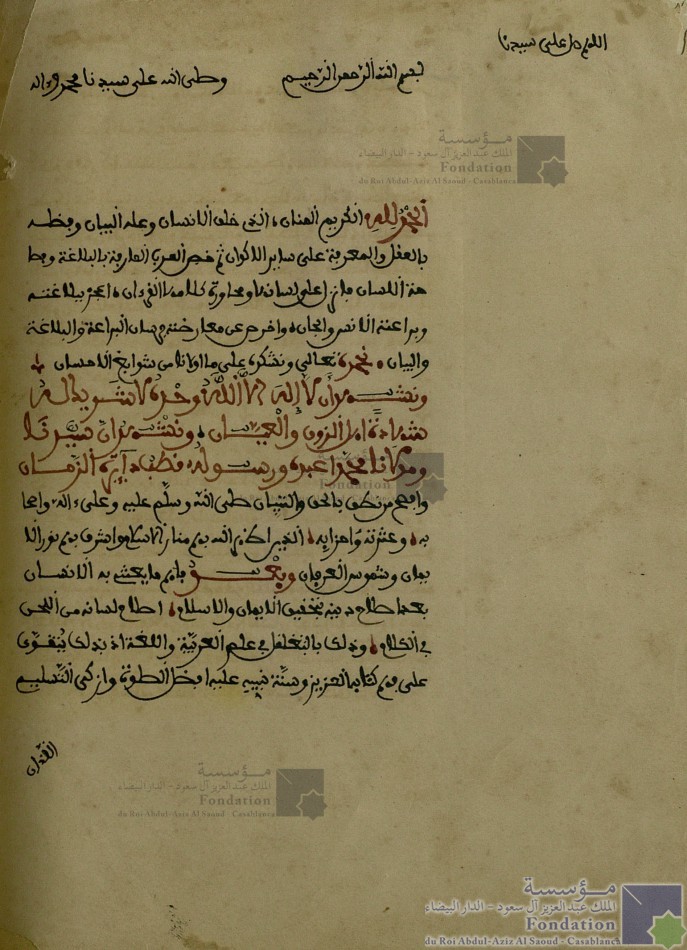 اللهم صل على سيدنا
بسم الله الرحمن الرحيم وصلى الله على سيدنا محمد وءاله
مؤسسة
الملك عبد العزيز آل سعود - الدار البيضاء
Fondation
du Roi Abdul-Aziz Al Saoud - Casablanca
الحمد لله الكريم المنان، الذي خلق الانسان وعلمه البيان وفضله
بالعقل والمعرفة على ساير الاكوان ثم خص العرب العارفة بالبلاغة وبصا
حة اللسان بان على لسانها ومحاورة كلامها القرءان، اعجز ببلاغته
وبراعته الانس والجان، واخرس عن معارضته البراعة والبلاغة
والبيان، نحمده تعالى ونشكره على ما اولانا من سوابغ الاحسان
ونشهد أن لا إله إلا الله وحده لا شريك له
شهادة والعيان، ونشهد ان سيدنا
ومولانا محمدا عبده ورسوله دايرة الزمان
وافصح من نطق بالحق والتبيان صلى الله وسلم عليه وعلى ءاله واصحا
به، وعترته واحزابه، الذين اظهر الله بهم منار الاسلام واشرق بهم نور الا
يمان وشموس العرفان وبعد فاهم ما يعتني به الانسان
بعد اصلاح دينه بتحقيق الايمان والاسلام، اصلاح لسانه من اللحن
في الكلام، وذلك بالتغلغل في علم العربية واللغة اذ بذلك يتقوى
على فهم كتابه العزيز وسنة نبيه عليه افضل الصلوة وازكى التسليم
Fondation
مؤسسة
الملك عبد العزيز آل سعود - الدار البيضاء
Fondation
du Roi Abdul-Aziz Al Saoud - Casablanca
مؤسسة
الملك عبد العزيز آل سعود - الدار البيضاء
Fondation
du Roi Abdul-Aziz Al Saoud - Casablanca